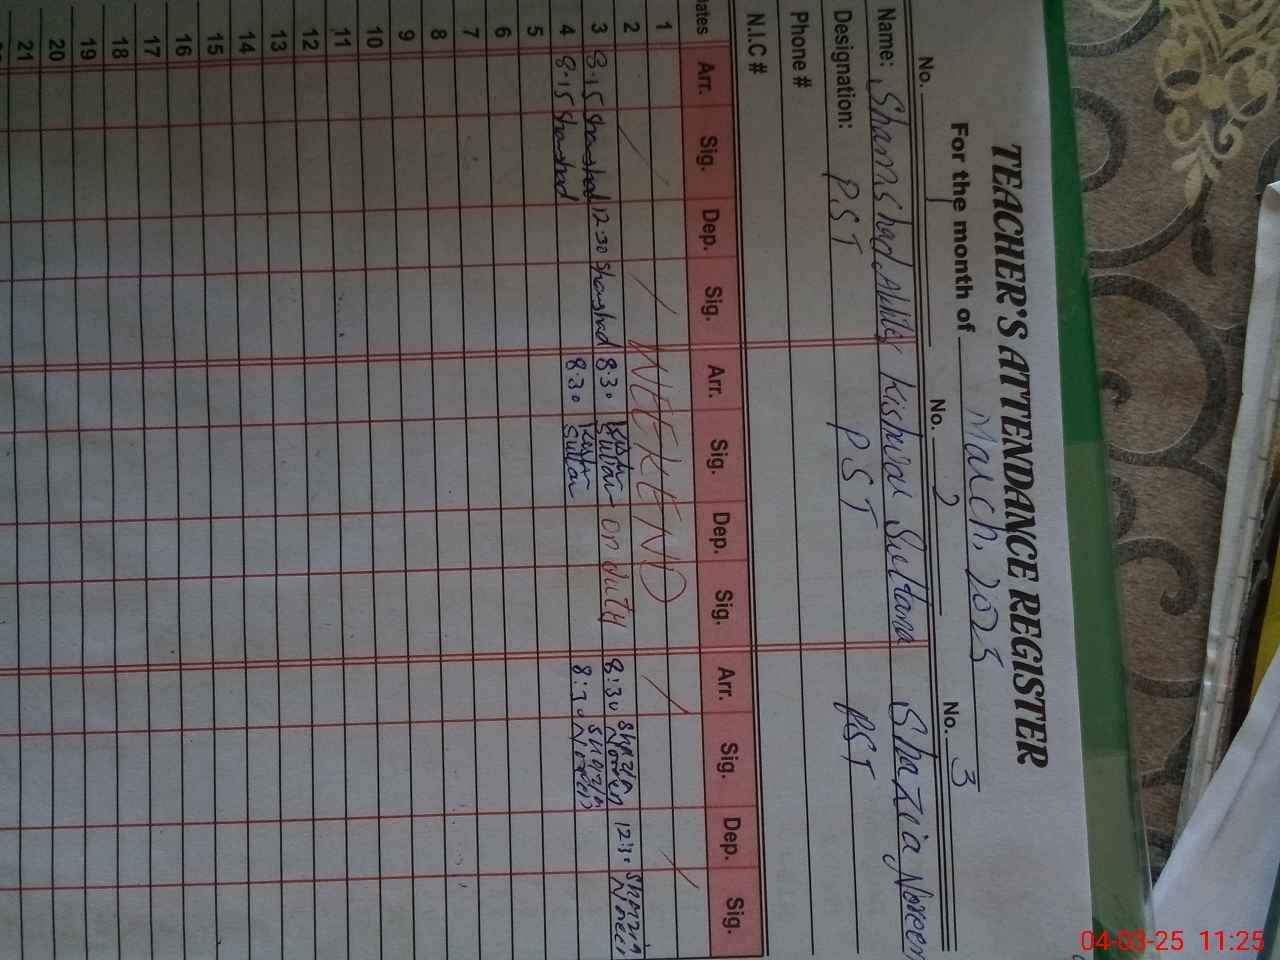 TEACHER'S ATTENDANCE REGISTER
For the month of March, 2025
No. 1 No. 2 No. 3
Name: Shamshad Kishwar Sultana Shazia Noreen
Designation: PST PST PST
Phone #
N.I.C #
Dates Arr. Sig. Dep. Sig. Arr. Sig. Dep. Sig. Arr. Sig. Dep. Sig.
1
2 WEEKEND
3 8.15 Shamshad 12.30 Shamshad 8.30 Sultan on duty 8:30 Shazia Noreen 12:30 Shazia Noreen
4 8.15 Shamshad 8.30 Sultan 8:30 Shazia Noreen
5
6
7
8
9
10
11
12
13
14
15
16
17
18
19
20
21
04-03-25 11:25